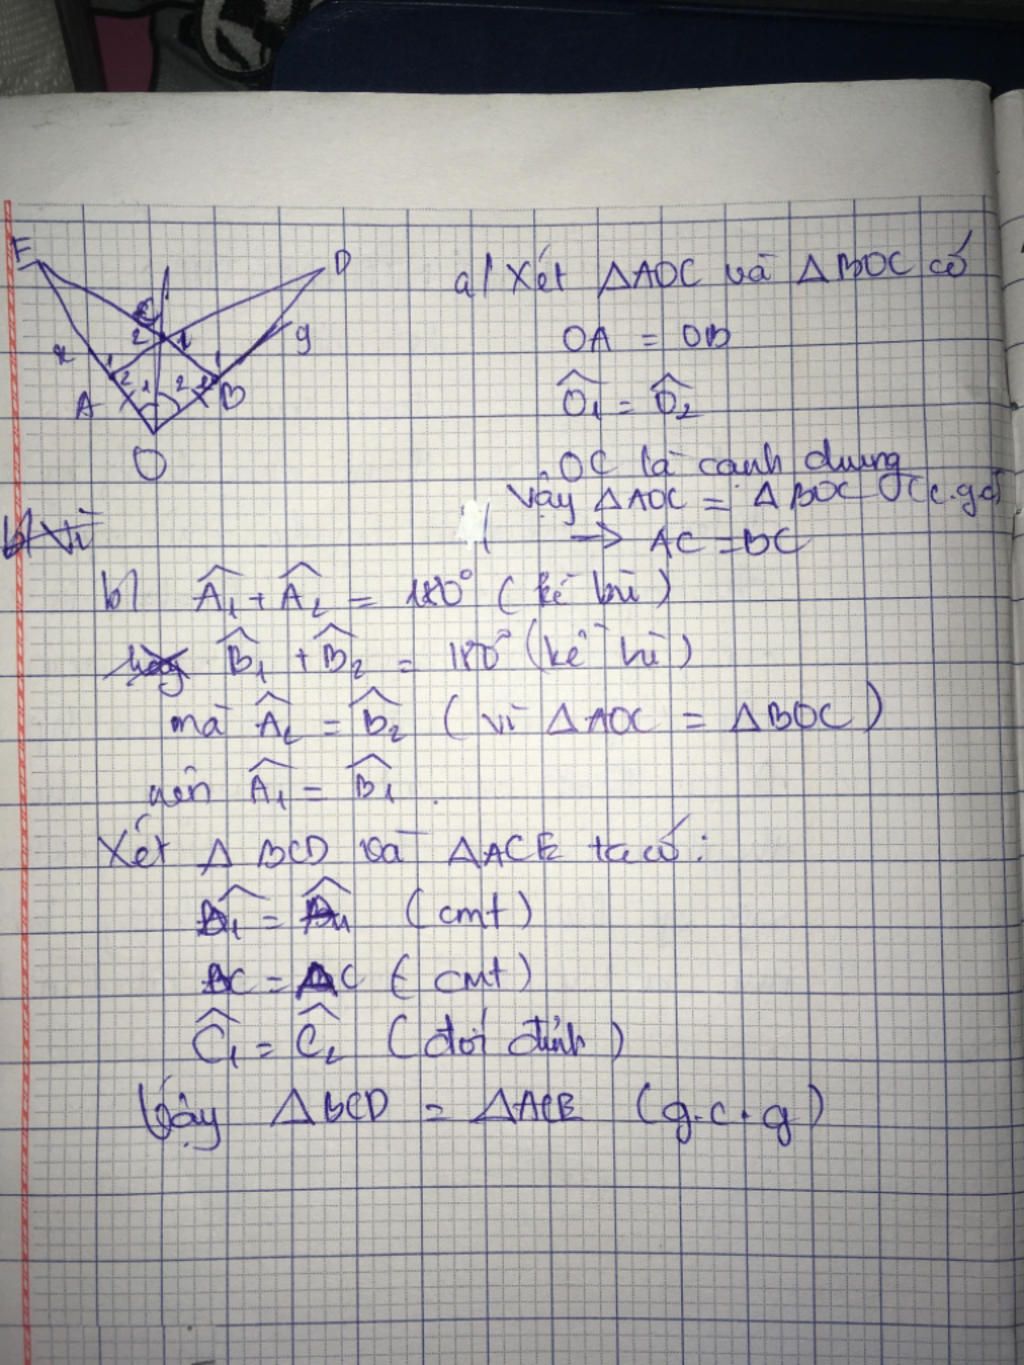 E
D
C
2
1
x
y
1
1
2
1
2
2
A
B
O
a/ Xét ΔAOC và ΔBOC có
OA = OB
Ô₁ = Ô₂
OC là cạnh chung
Vậy ΔAOC = ΔBOC (c.g.c)
→ AC = BC
b/ Vì
b/ Â₁ + Â₂ = 180° (kề bù)
B̂₁ + B̂₂ = 180° (kề bù)
mà Â₂ = B̂₂ (vì ΔAOC = ΔBOC)
nên Â₁ = B̂₁.
Xét Δ BCD và ΔACE ta có:
B̂₁ = Â₁ (cmt)
BC = AC (cmt)
Ĉ₁ = Ĉ₂ (đối đỉnh)
Vậy ΔBCD = ΔACE (g.c.g)